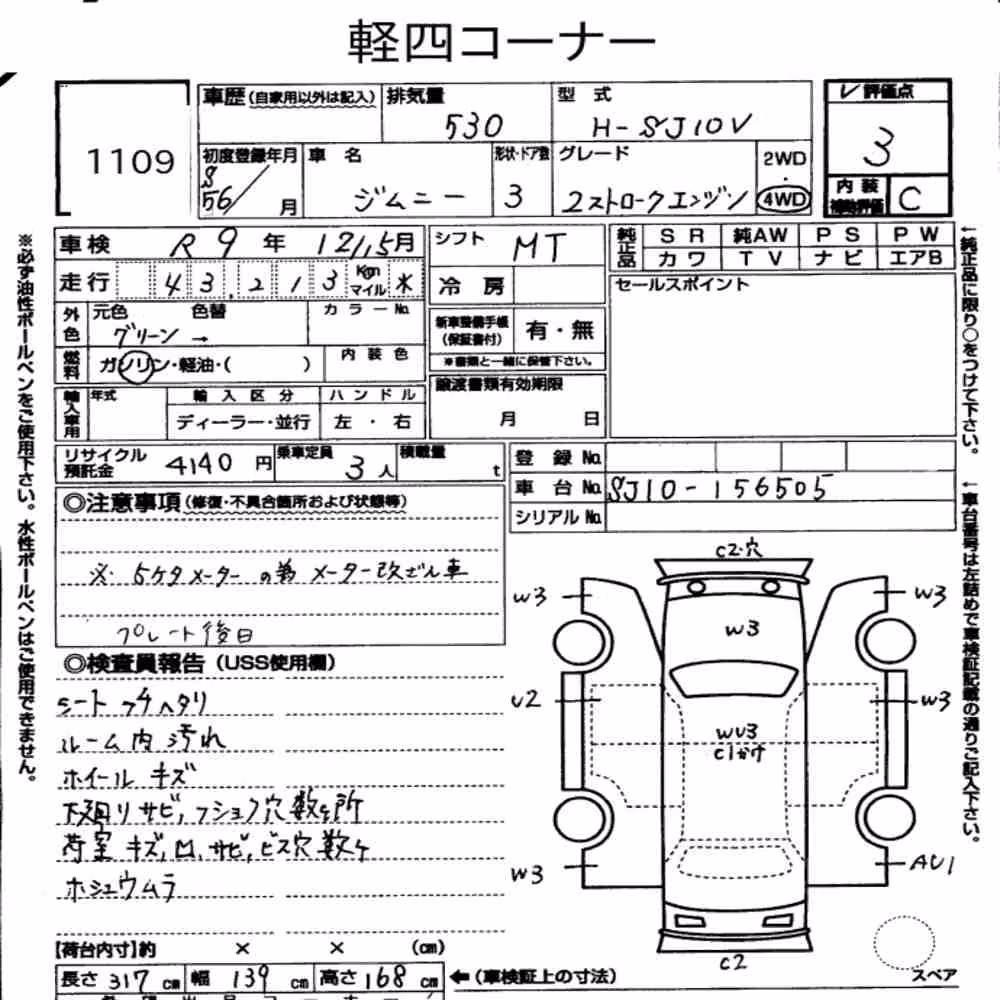 軽四コーナー
1109
車歴(自家用以外は記入) 排気量 型式 評価点
530 H-SJ10V 3
初度登録年月 車名 形状・ドア数 グレード 2WD・4WD
S56/ 月 ジムニー 3 2ストロークエンジン 内装補助評価 C
車検 R9年 12/15月 シフト MT 純正品 SR 純AW PS PW
カワ TV ナビ エアB
走行 43,213 Kgm マイル * 冷房 セールスポイント
外色 元色 色替 カラーNo.
グリーン →
新車整備手帳(保証書付) 有・無
※書類と一緒に保管下さい。
燃料 ガソリン・軽油・( ) 内装色
譲渡書類有効期限 月 日
輸入車用 年式 輸入区分 ハンドル
ディーラー・並行 左・右
リサイクル預託金 4140円 乗車定員 3人 積載量 t
登録No.
車台No. SJ10-156505
シリアルNo.
◎注意事項(修復・不具合箇所および状態等)
※. 5ケタメーターの為 メーター改ざん車
プレート後日
◎検査員報告(USS使用欄)
シート フチヘタリ
ルーム内 汚れ
ホイール キズ
下廻りサビ,フショク穴数ヶ所
荷室 キズ,凹,サビ,ビス穴数ヶ
ホシュウムラ
【荷台内寸】約 × × (cm)
長さ 317 cm 幅 139 cm 高さ 168 cm ←(車検証上の寸法)
C2・穴
W3 W3
W3
U2 W3
WU3
C1かけ
W3 AU1
C2
スペア
※必ず油性ボールペンをご使用下さい。水性ボールペンはご使用できません。
←純正品に限り○をつけて下さい。
←車台番号は左詰めで車検証記載の通りご記入下さい。